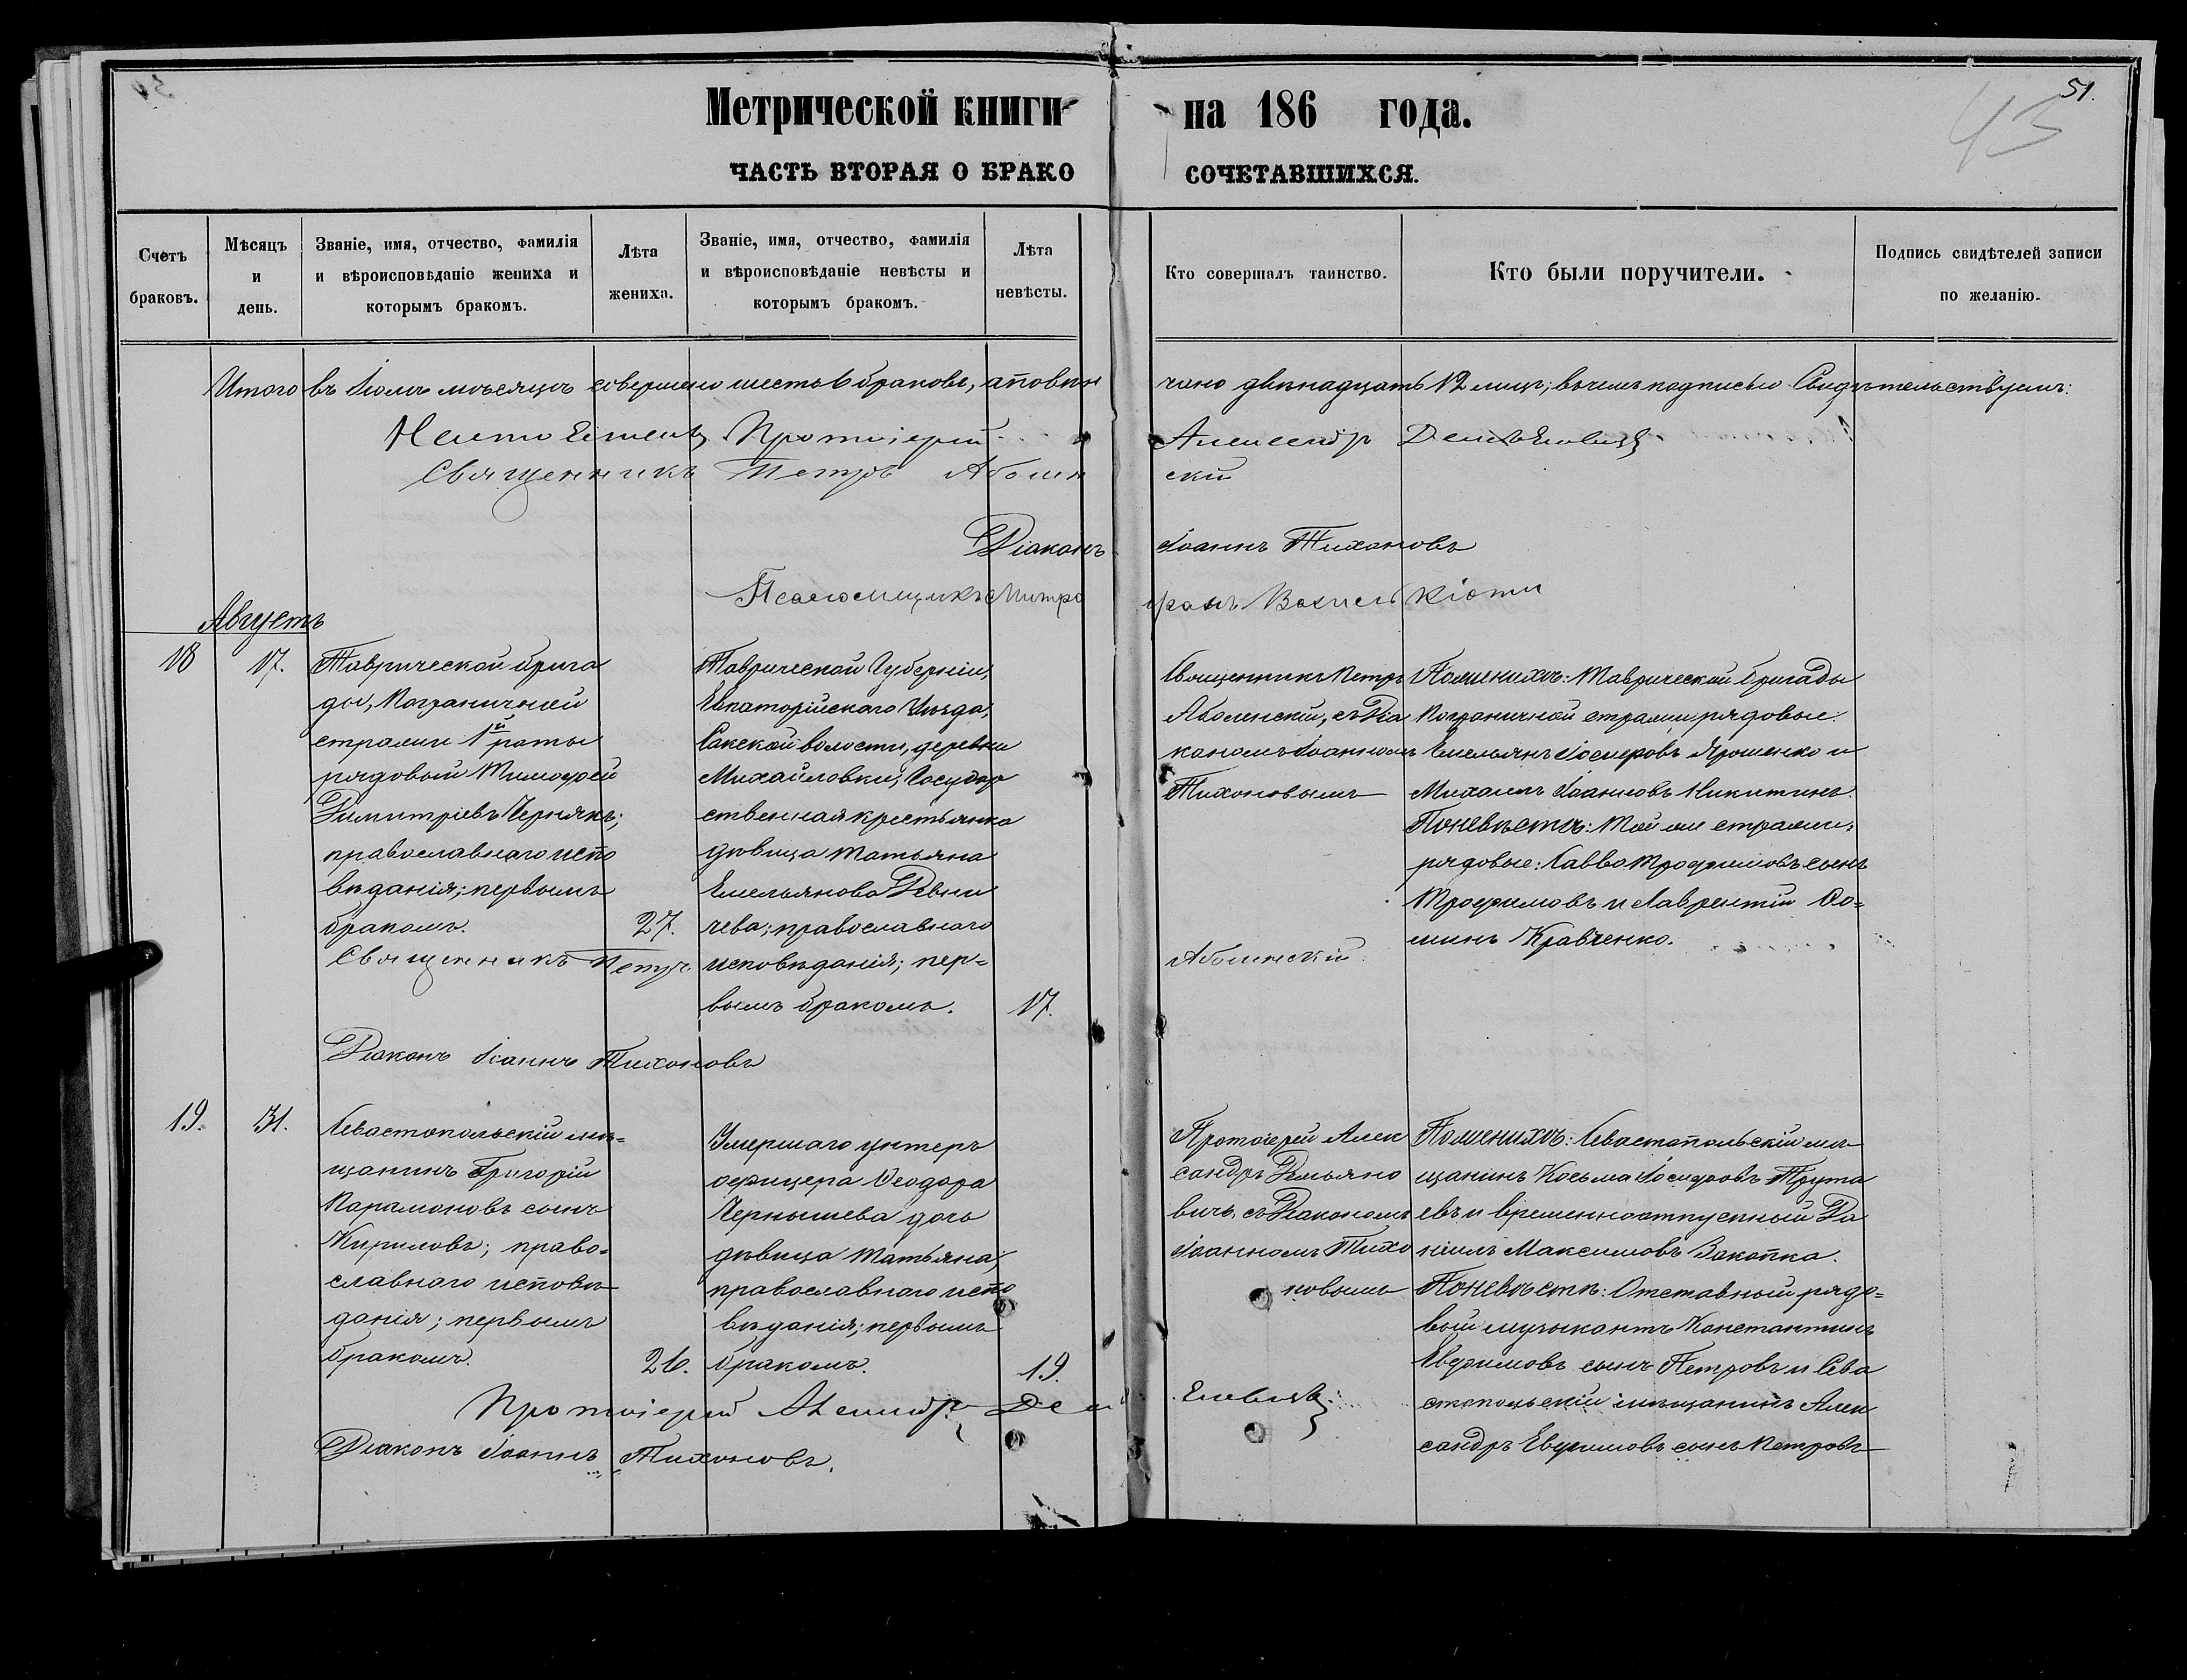 51.
43
Метрической книги на 186 года.
ЧАСТЬ ВТОРАЯ О БРАКО СОЧЕТАВШИХСЯ.
Счетъ браковъ.
Мѣсяцъ и день.
Званіе, имя, отчество, фамилія и вѣроисповѣданіе жениха и которымъ бракомъ.
Лѣта жениха.
Званіе, имя, отчество, фамилія и вѣроисповѣданіе невѣсты и которымъ бракомъ.
Лѣта невѣсты.
Кто совершалъ таинство.
Кто были поручители.
Подпись свидѣтелей записи по желанію.
Итого въ Іюлѣ мѣсяцѣ совершено шесть 6 браковъ, а повѣнчано двѣнадцать 12 лицъ; въ чемъ подписью Свидѣтельствуемъ:
Протоіерей Александръ Демьяновичъ
Священникъ Петръ Аболенскій
Діаконъ Іоаннъ Тихоновъ
Псаломщикъ Митрофанъ
Августъ
18
17.
Таврической брига
ды, Пограничной
стражи 1й роты
рядовый Тимофей
Димитріевъ Чернякъ;
православнаго испо
вѣданія; первымъ
бракомъ.
27.
Таврической Губерніи,
Евпаторійскаго Уѣзда,
Сакской волости, деревни
Михайловки, Государ
ственная крестьянка
дѣвица Татьяна
Емельянова
чева; православнаго
исповѣданія; пер=
вымъ бракомъ.
17.
Священникъ Петръ
Аболенскій, съ Діа
кономъ Іоанномъ
Тихоновымъ
По женихѣ: Таврической бригады
Пограничной стражи рядовые:
Емельянъ Іосифовъ Ярошенко и
Михаилъ Іоанновъ Никитинъ.
По невѣстѣ: Той же стражи,
рядовые: Савва Трофимовъ сынъ
Трофимовъ и Лаврентій Ѳо=
минъ Кравченко.
Священникъ Петръ Аболенскій
Діаконъ Іоаннъ Тихоновъ
19.
31.
Севастопольскій мѣ=
щанинъ Григорій
Парамоновъ сынъ
Кириловъ; право=
славнаго исповѣ
данія; первымъ
бракомъ.
26.
Умершаго унтеръ
офицера Ѳеодора
Чернышева дочь
дѣвица Татьяна,
православнаго испо
вѣданія; первымъ
бракомъ.
19.
Протоіерей Алек
сандръ Демьяно
вичъ, съ Діакономъ
Іоанномъ Тихо
новымъ
По женихѣ: Севастопольскій мѣ
щанинъ Косьма Іосифовъ Трута
евъ и временноотпускный Да
ніилъ Максимовъ Закапка.
По невѣстѣ: Отставный рядо=
вый музыкантъ Константинъ
Евфимовъ сынъ Петровъ и Сева
стопольскій мѣщанинъ Алек
сандръ Евфимовъ сынъ Петровъ
Протоіерей Александръ Демьяновичъ
Діаконъ Іоаннъ Тихоновъ.